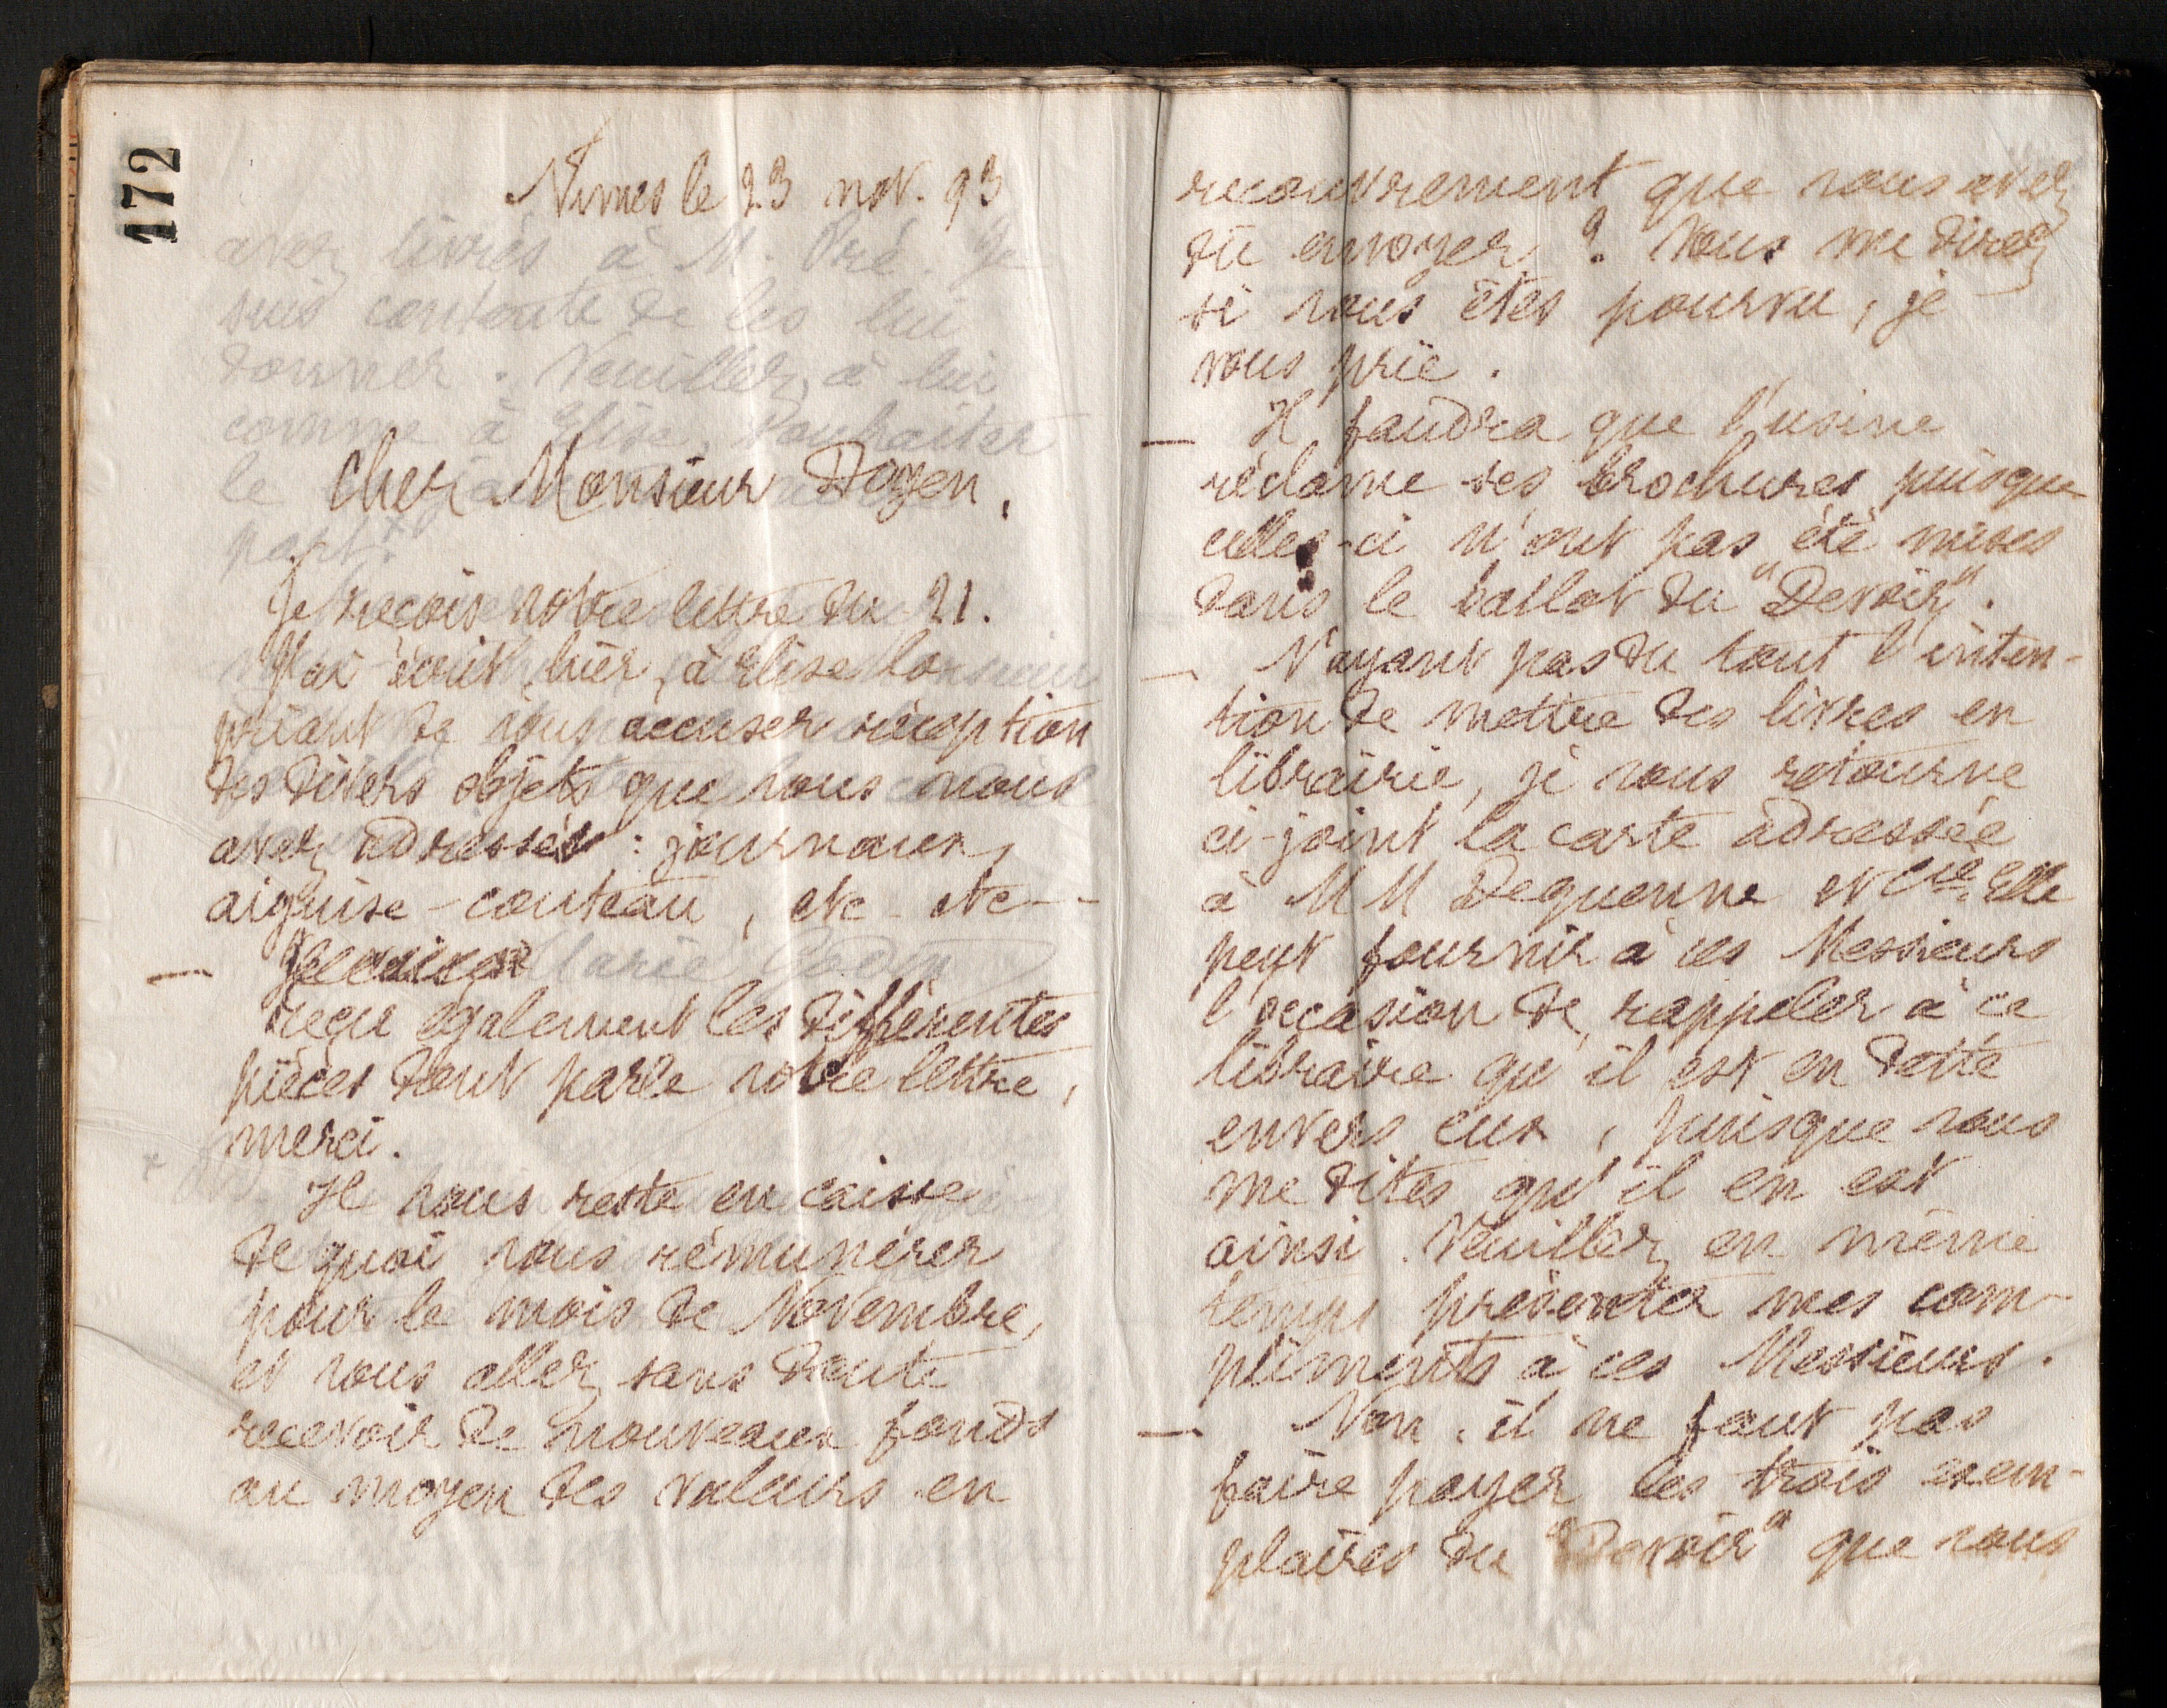 172
Nîmes le 23 nov. 93
Cher Monsieur Doyen,
Je reçois votre lettre du 21.
J'ai écrit, hier, à Elise la
priant de vous accuser réception
des divers objets que vous nous
avez adressés : journaux,
aiguise-couteau, etc etc --
reçu également les différentes
pièces dont parle votre lettre,
merci.
Il vous reste en caisse
de quoi vous rémunérer
pour le mois de Novembre,
et vous allez sans doute
recevoir de nouveaux fonds
au moyen des valeurs en
recouvrement que vous avez
dû envoyer ? Vous me direz
si vous êtes pourvu, je
vous prie.
— Il faudra que l'usine
réclame ses brochures puisque
celles-ci n'ont pas été mises
dans le ballot du "Devoir".
— N'ayant pas du tout l'inten-
tion de mettre des livres en
librairie, je vous retourne
ci-joint la carte adressée
à MM Dequenne et Cie. Elle
peut fournir à ces Messieurs
l'occasion de rappeler à ce
libraire qu'il est en dette
envers eux, puisque vous
me dites qu'il en est
ainsi. Veuillez en même
temps présenter mes com-
pliments à ces Messieurs.
— Non, il ne faut pas
faire payer les trois exem-
plaires du "Devoir" que vous